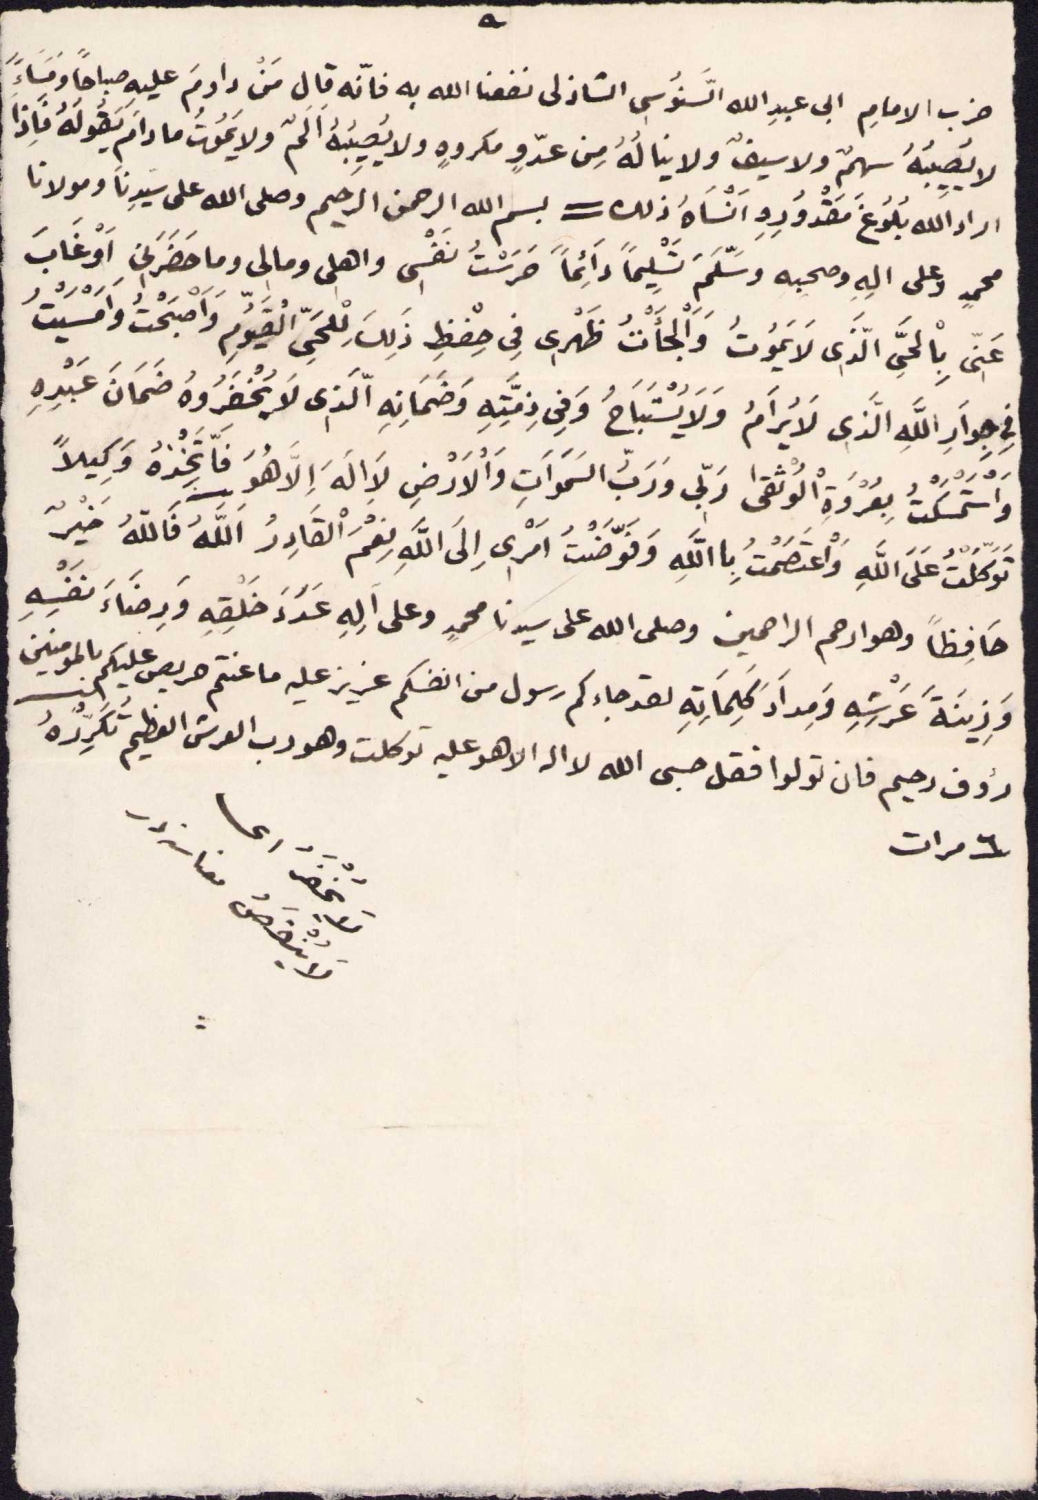 حزب الامامِ ابى عبدِ الله السَّنوُسِى الشاذلى نفعنا الله به فانّه قال مَنْ دَاومَ عليه صباحًا وَمَسَاءً
لا يُصِيبُهُ سهمٌ ولا سيفٌ ولا ينالُهُ مِن عدّوٍ مكروهٍ ولا يُصِيبُهُ اَلَمٌ ولا يَمُوتُ ما دَامَ يَقُولَهُ فَاِذَا
اراد الله بُلُوغَ مَقْدُورِهِ اَنْسَاهُ ذلك = بسم الله الرحمن الرحيم وصلى الله على سَيِدِنَا ومولانا
محمدٍ وعلى الِهِ وصحبه وسَلَّمَ تَسْلِيماً دَائِماً حَرَسْتُ نَفْسِى واهلى ومالى وما حَضَرَنِى اَوْ غَابَ
عَنِّى بِالْحَىِّ الَّذِى لَا يَمُوتُ وَاَلْجَأْتُ ظَهْرِى فِى حِفْظِ ذَلِكَ لِلْحَىِّ الْقَيُّومِ وَاَصْبَحْتُ وَاَمْسَيْتُ
فِى جِوَارِ اللَّهِ الَّذِى لَا يُرَامُ وَلَا يُسْتَبَاحُ وَفِى ذِمَّتِهِ وَضَمَانِهِ الَّذِى لَا يُخْفَرُوهُ ضَمَانَ عَبْدِهِ
وَاسْتَمْسَكْتُ بِعُرْوَةِ الْوُثْقَى رَبِّى وَرَبُّ السَمَوَاتِ وَالْاَرْضِ لَا اِلَهَ اِلَّا هُوَ فَاتَّخِذْهُ وَكِيلاً
تَوَكَّلْتُ عَلَى اللَّهِ وَاْعْتَصَمْتُ بِااللَّهِ وَفَوَّضْتُ اَمْرِى اِلَى اللَّهِ نِعْمَ الْقَادِرُ اَللَّهُ فَاللهُ خَيْرٌ
حَافِظاً وهو ارحم الراحمين وصلى الله على سيدنا محمدٍ وعلى اَلِهِ عَدَدَ خَلْقِهِ وَرِضَاءَ نَفْسِهِ
وَزِينَةَ عَرْشِهِ وَمِدَادَ كَلِمَاتِهِ لقد جاءكم رسول من انفسكم عزيز عليه ما عنتم حريص عليكم بالمومنين
رؤف رحيم فان تولوا فقل حسبى الله لا اله الا هو عليه توكلت وهو رب العرش العظيم تُكَرِّرُهُ
٦ مرات